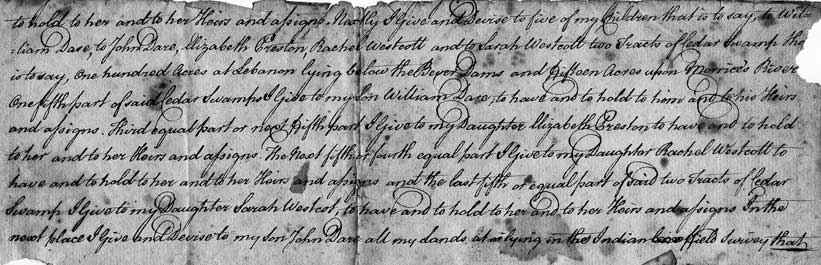 to hold to her and to her Heirs and assigns. I Give and Devise to five of my Children that is to say, to Wil-
-liam Dare, to John Dare, Elizabeth Preston, Rachel Westcott and to Sarah Westcott two Tracts of Cedar Swamp th
is to say, One hundred Acres at Lebanon lying below the Bever Dams and fifteen Acres upon Morrice's River
One fifth part of said Cedar Swamps I Give to my Son William Dare, to have and to hold to him and to his Heirs
and assigns. Third equal part or next fifth part I Give to my Daughter Elizabeth Preston to have and to hold
to her and to her Heirs and assigns. The Next fifth or fourth equal part I Give to my Daughter Rachel Westcott to
have and to hold to her and to her Heirs and assigns and the last fifth or equal part of said two Tracts of Cedar
Swamp I Give to my Daughter Sarah Westcot, to have and to hold to her and to her Heirs and assigns In the
next place I Give and Devise to my Son John Dare all my Lands lying in the Indian field Survey that